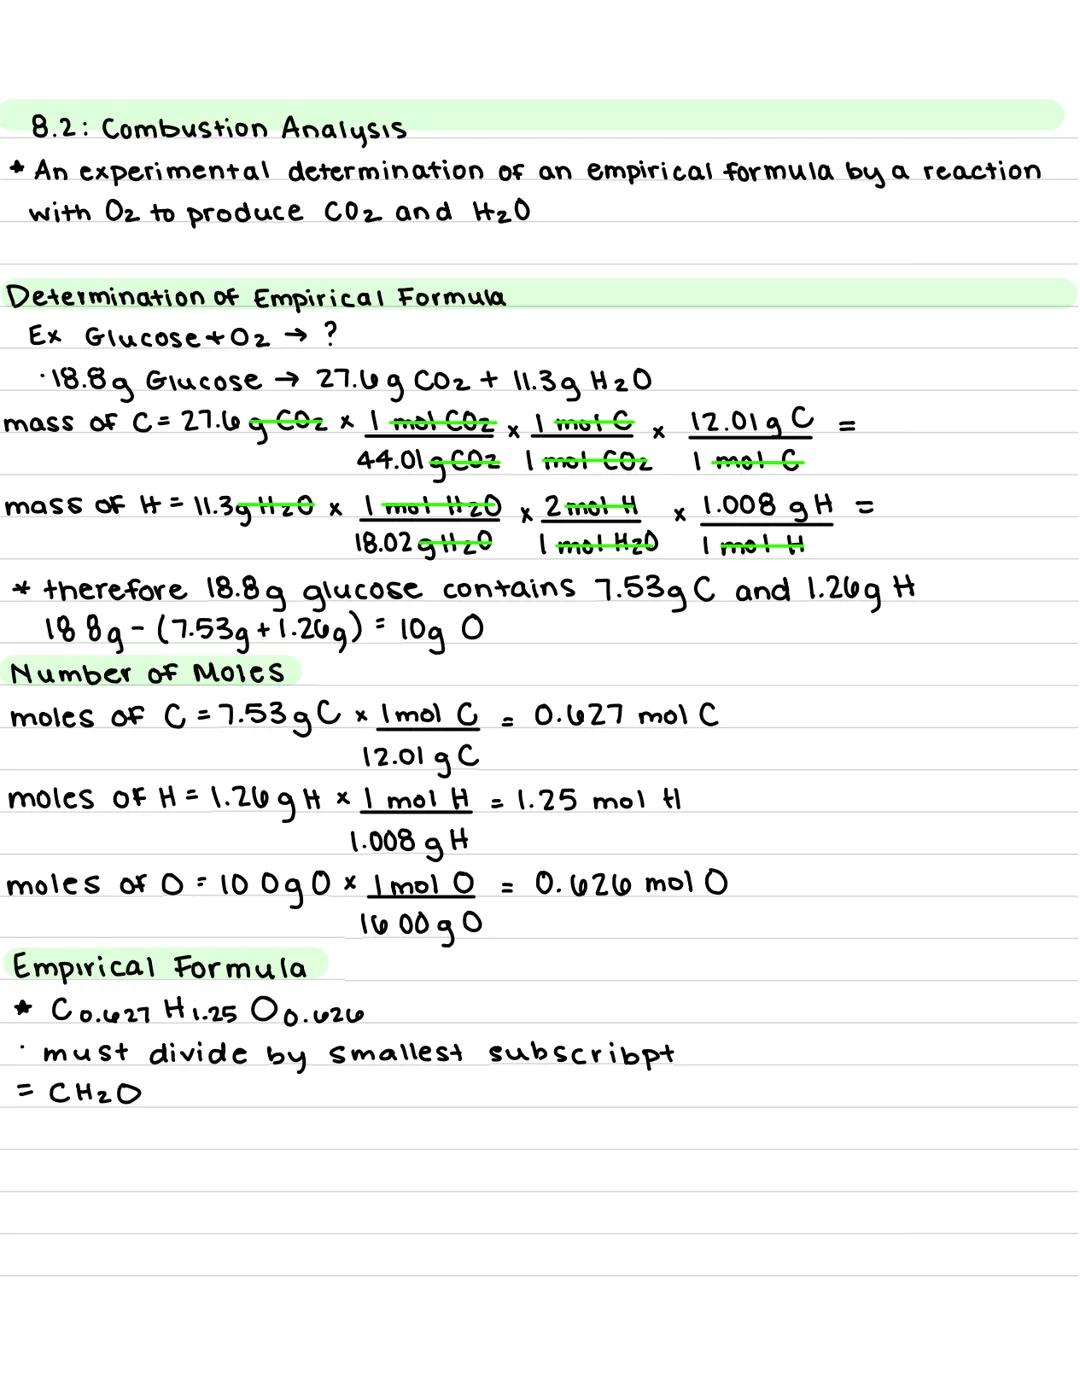 8.2: Combustion Analysis
* An experimental determination of an empirical formula by a reaction
with O₂ to produce CO₂ and H₂O
Determination of Empirical Formula
Ex Glucose + O₂ → ?
· 18.8g Glucose → 27.6g CO₂ + 11.3g H₂O
mass of C = 27.6 g CO₂ x 1 mol CO₂ x 1 mol C x 12.01 g C =
44.01 g CO₂ 1 mol CO₂ 1 mol C
mass of H = 11.3g H₂O x 1 mol H₂O x 2 mol H x 1.008 g H =
18.02 g H₂O 1 mol H₂O 1 mol H
* therefore 18.8g glucose contains 7.53g C and 1.26g H
18 8g - (7.53g + 1.26g) = 10g O
Number of Moles
moles of C = 7.53 g C x 1 mol C = 0.627 mol C
12.01 g C
moles of H = 1.26 g H x 1 mol H = 1.25 mol H
1.008 g H
moles of O = 10 0g O x 1 mol O = 0.626 mol O
16 00 g O
Empirical Formula
* C₀.₆₂₇ H₁.₂₅ O₀.₆₂₆
· must divide by smallest subscribpt
= CH₂O